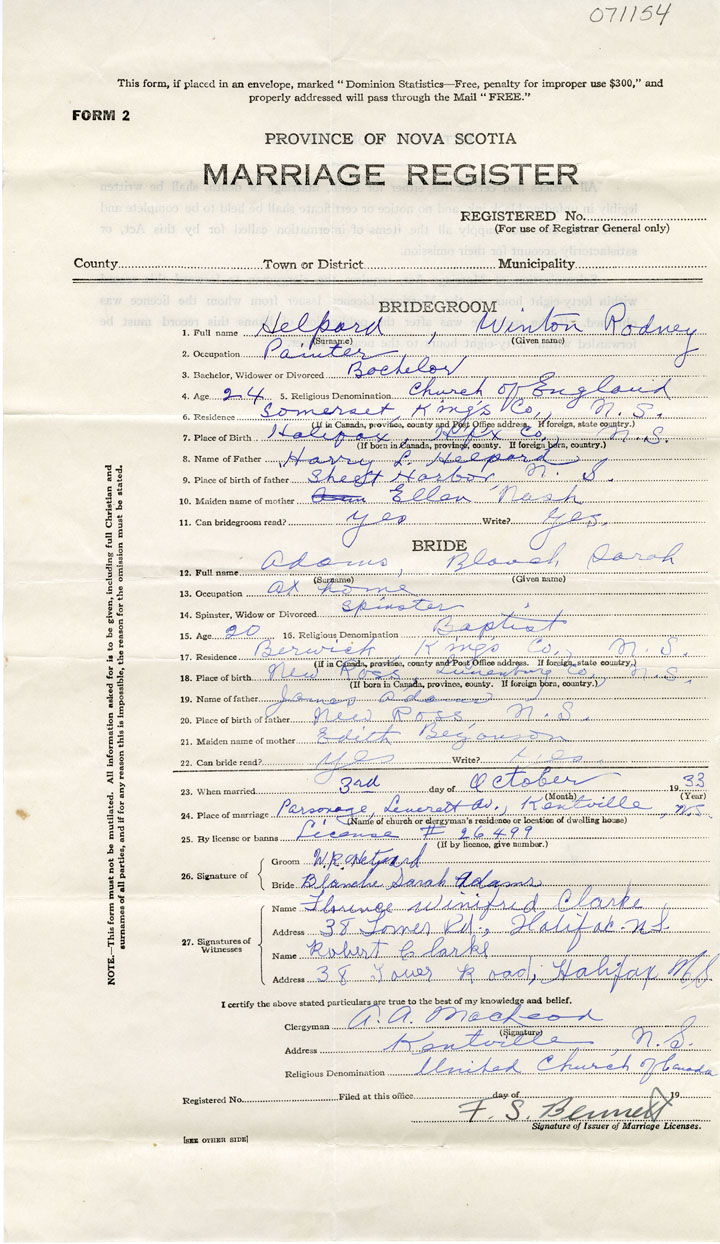 071154
This form, if placed in an envelope, marked "Dominion Statistics—Free, penalty for improper use $300," and
properly addressed will pass through the Mail "FREE."
FORM 2
PROVINCE OF NOVA SCOTIA
MARRIAGE REGISTER
REGISTERED No.
(For use of Registrar General only)
County Town or District Municipality
BRIDEGROOM
1. Full name Helpard , Winton Rodney
(Surname) (Given name)
2. Occupation Painter
3. Bachelor, Widower or Divorced Bachelor
4. Age 24 5. Religious Denomination Church of England
6. Residence Somerset King's Co., N. S.
(If in Canada, province, county and Post Office address. If foreign, state country.)
7. Place of Birth Halifax, Hfx Co., N. S.
(If born in Canada, province, county. If foreign born, country.)
8. Name of Father Harry L. Helpard
9. Place of birth of father Sheet Harbor N. S.
10. Maiden name of mother Ellen Nash
11. Can bridegroom read? Yes Write? Yes.
BRIDE
12. Full name Adams, Blanch Sarah
(Surname) (Given name)
13. Occupation at home
14. Spinster, Widow or Divorced Spinster
15. Age 20 16. Religious Denomination Baptist
17. Residence Berwick King's Co., N. S.
(If in Canada, province, county and Post Office address. If foreign, state country.)
18. Place of birth New Ross Lunenburg Co, N. S.
(If born in Canada, province, county. If foreign born, country.)
19. Name of father James Adams
20. Place of birth of father New Ross, N. S.
21. Maiden name of mother Edith Bezonson
22. Can bride read? Yes Write? Yes.
23. When married 3rd day of October 1933
(Month) (Year)
24. Place of marriage Parsonage, Leverett Av., Kentville, N.S.
(Name of church or clergyman's residence or location of dwelling house)
25. By license or banns License # 26499
(If by licence, give number.)
26. Signature of Groom W.R. Helpard
Bride Blanche Sarah Adams
27. Signatures of Witnesses
Name Florence Winifred Clarke
Address 38 Tower Rd., Halifax N.S.
Name Robert Clarke
Address 38 Tower Road, Halifax N.S
I certify the above stated particulars are true to the best of my knowledge and belief.
Clergyman A. A. MacLeod
(Signature)
Address Kentville, N. S.
Religious Denomination United Church of Canada
Registered No. Filed at this office day of 19
F. S. Bennett
Signature of Issuer of Marriage Licenses.
[SEE OTHER SIDE]
NOTE.—This form must not be mutilated. All information asked for is to be given, including full Christian and
surnames of all parties, and if for any reason this is impossible, the reason for the omission must be stated.